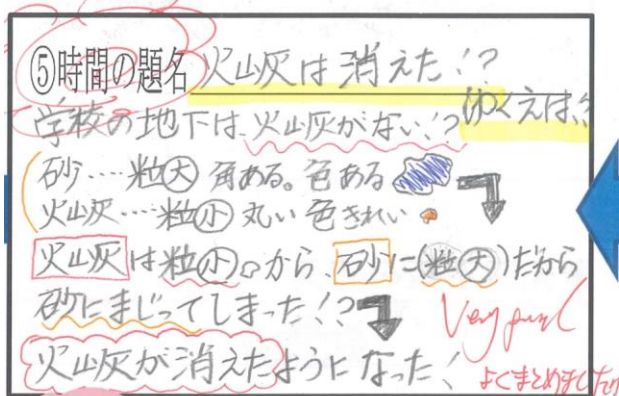 ⑤時間の題名 火山灰は消えた!?
ゆくえは
学校の地下は、火山灰がない!?
砂……粒大 角ある。色ある
火山灰…粒小 丸い 色きれい
火山灰は粒小。から、砂に(粒大)だから
砂にまじってしまった!?
火山灰が消えたようになった!
Very
よくまとめました